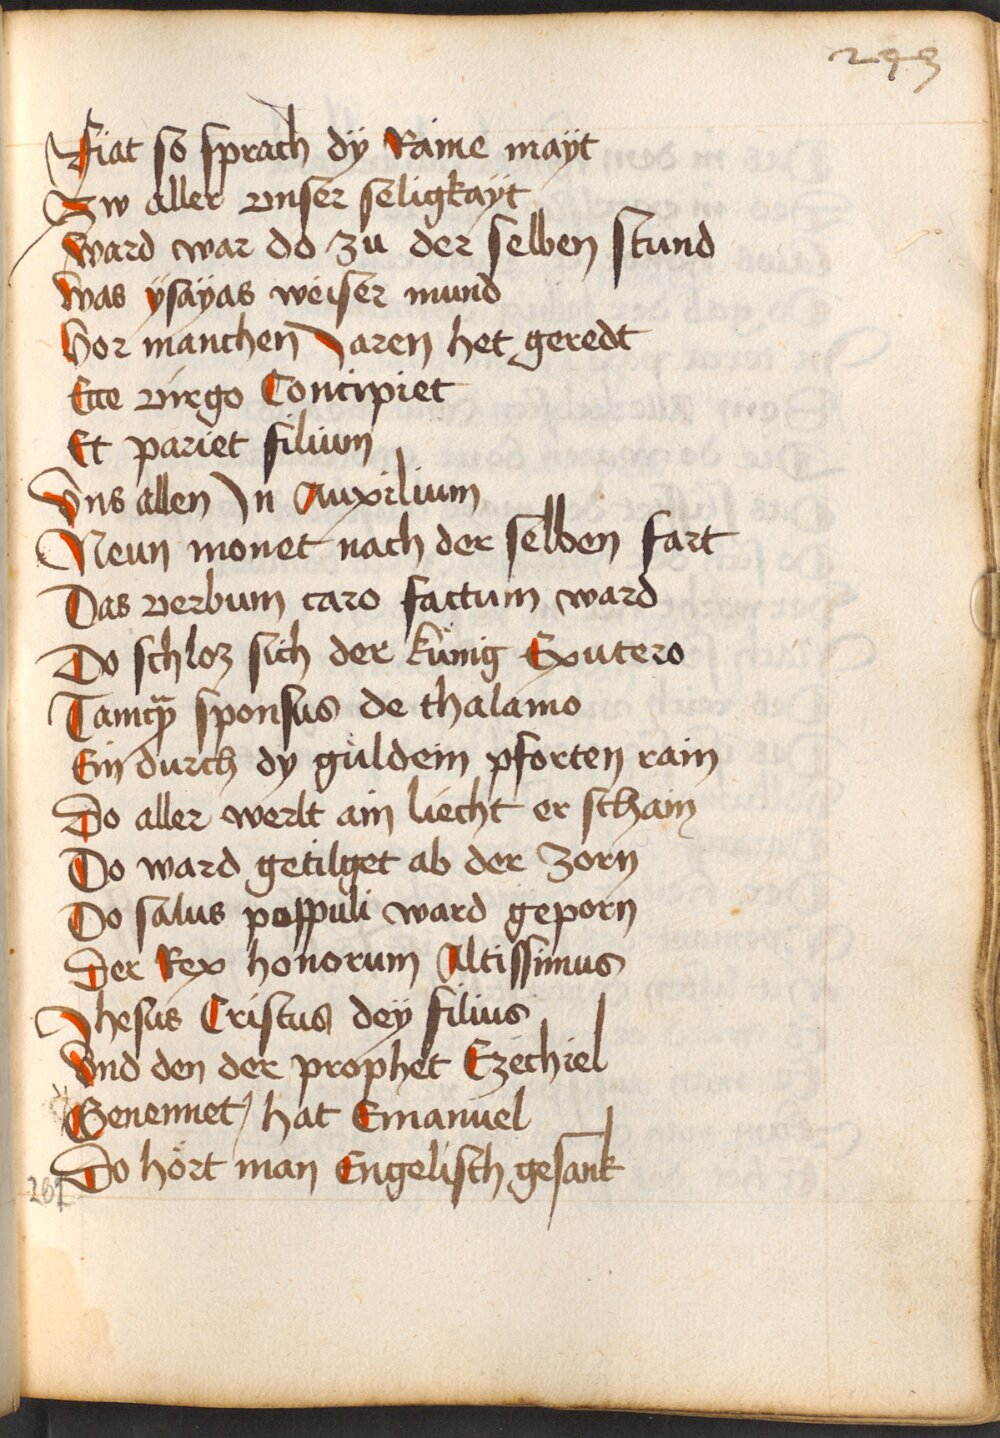 243
Fiat so sprach dÿ Raine mayt
Zw aller vnser seligkaÿt
Ward war do zu der selben stund
Was ÿsaÿas weiser mund
Vor manchen Jaren het geredt
Ecce virgo Concipiet
Et pariet filium
Vns allen Jn Auxilium
Neun monet nach der selben fart
Das verbum caro factum ward
Do schloz sich der künig Exutero
Tamqͣ sponsus de thalamo
Ein durch dy güldein pforten rain
Do aller werlt ain liecht er schain
Do ward getilget ab der zorn
Do salus poppuli ward geporn
Der Rex honorum Altissimus
Jhesus Cristus deÿ filius
Vnd den der prophet Ezechiel
Genennet hat Emanuel
Do hört man Engelisch gesank